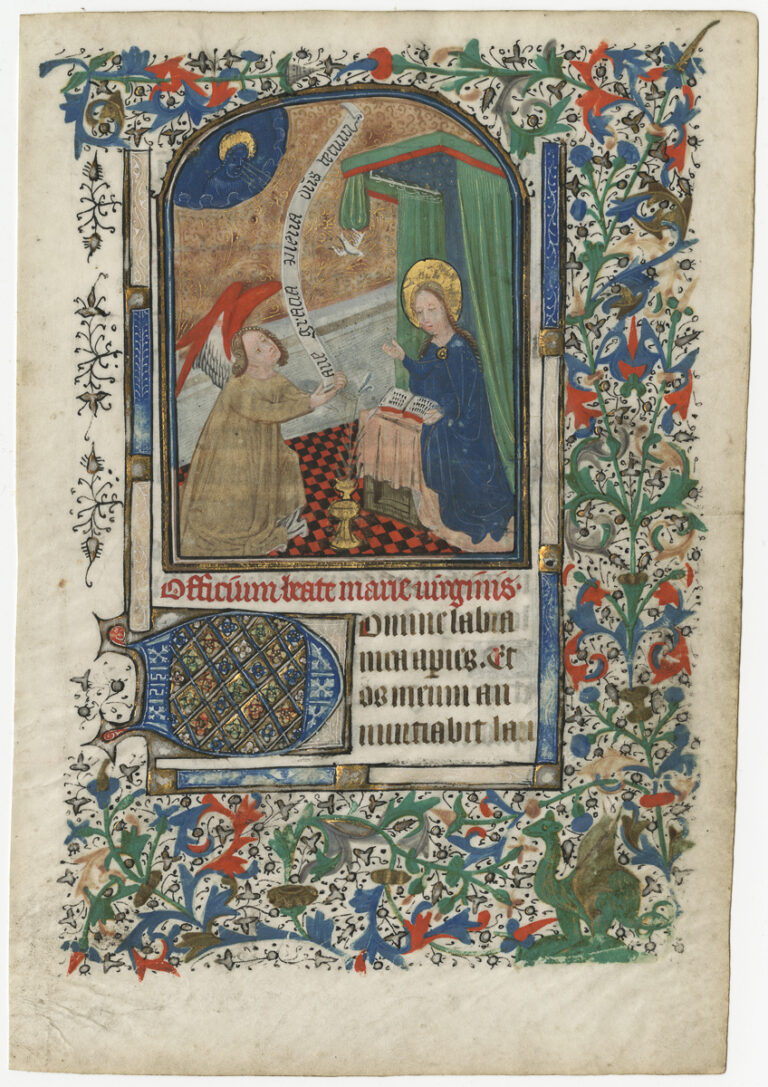 aue gracia plena dns tecum
Officium beate marie uirginis.
Domine labia
mea apies. Et
os meum an
nuntiabit lau